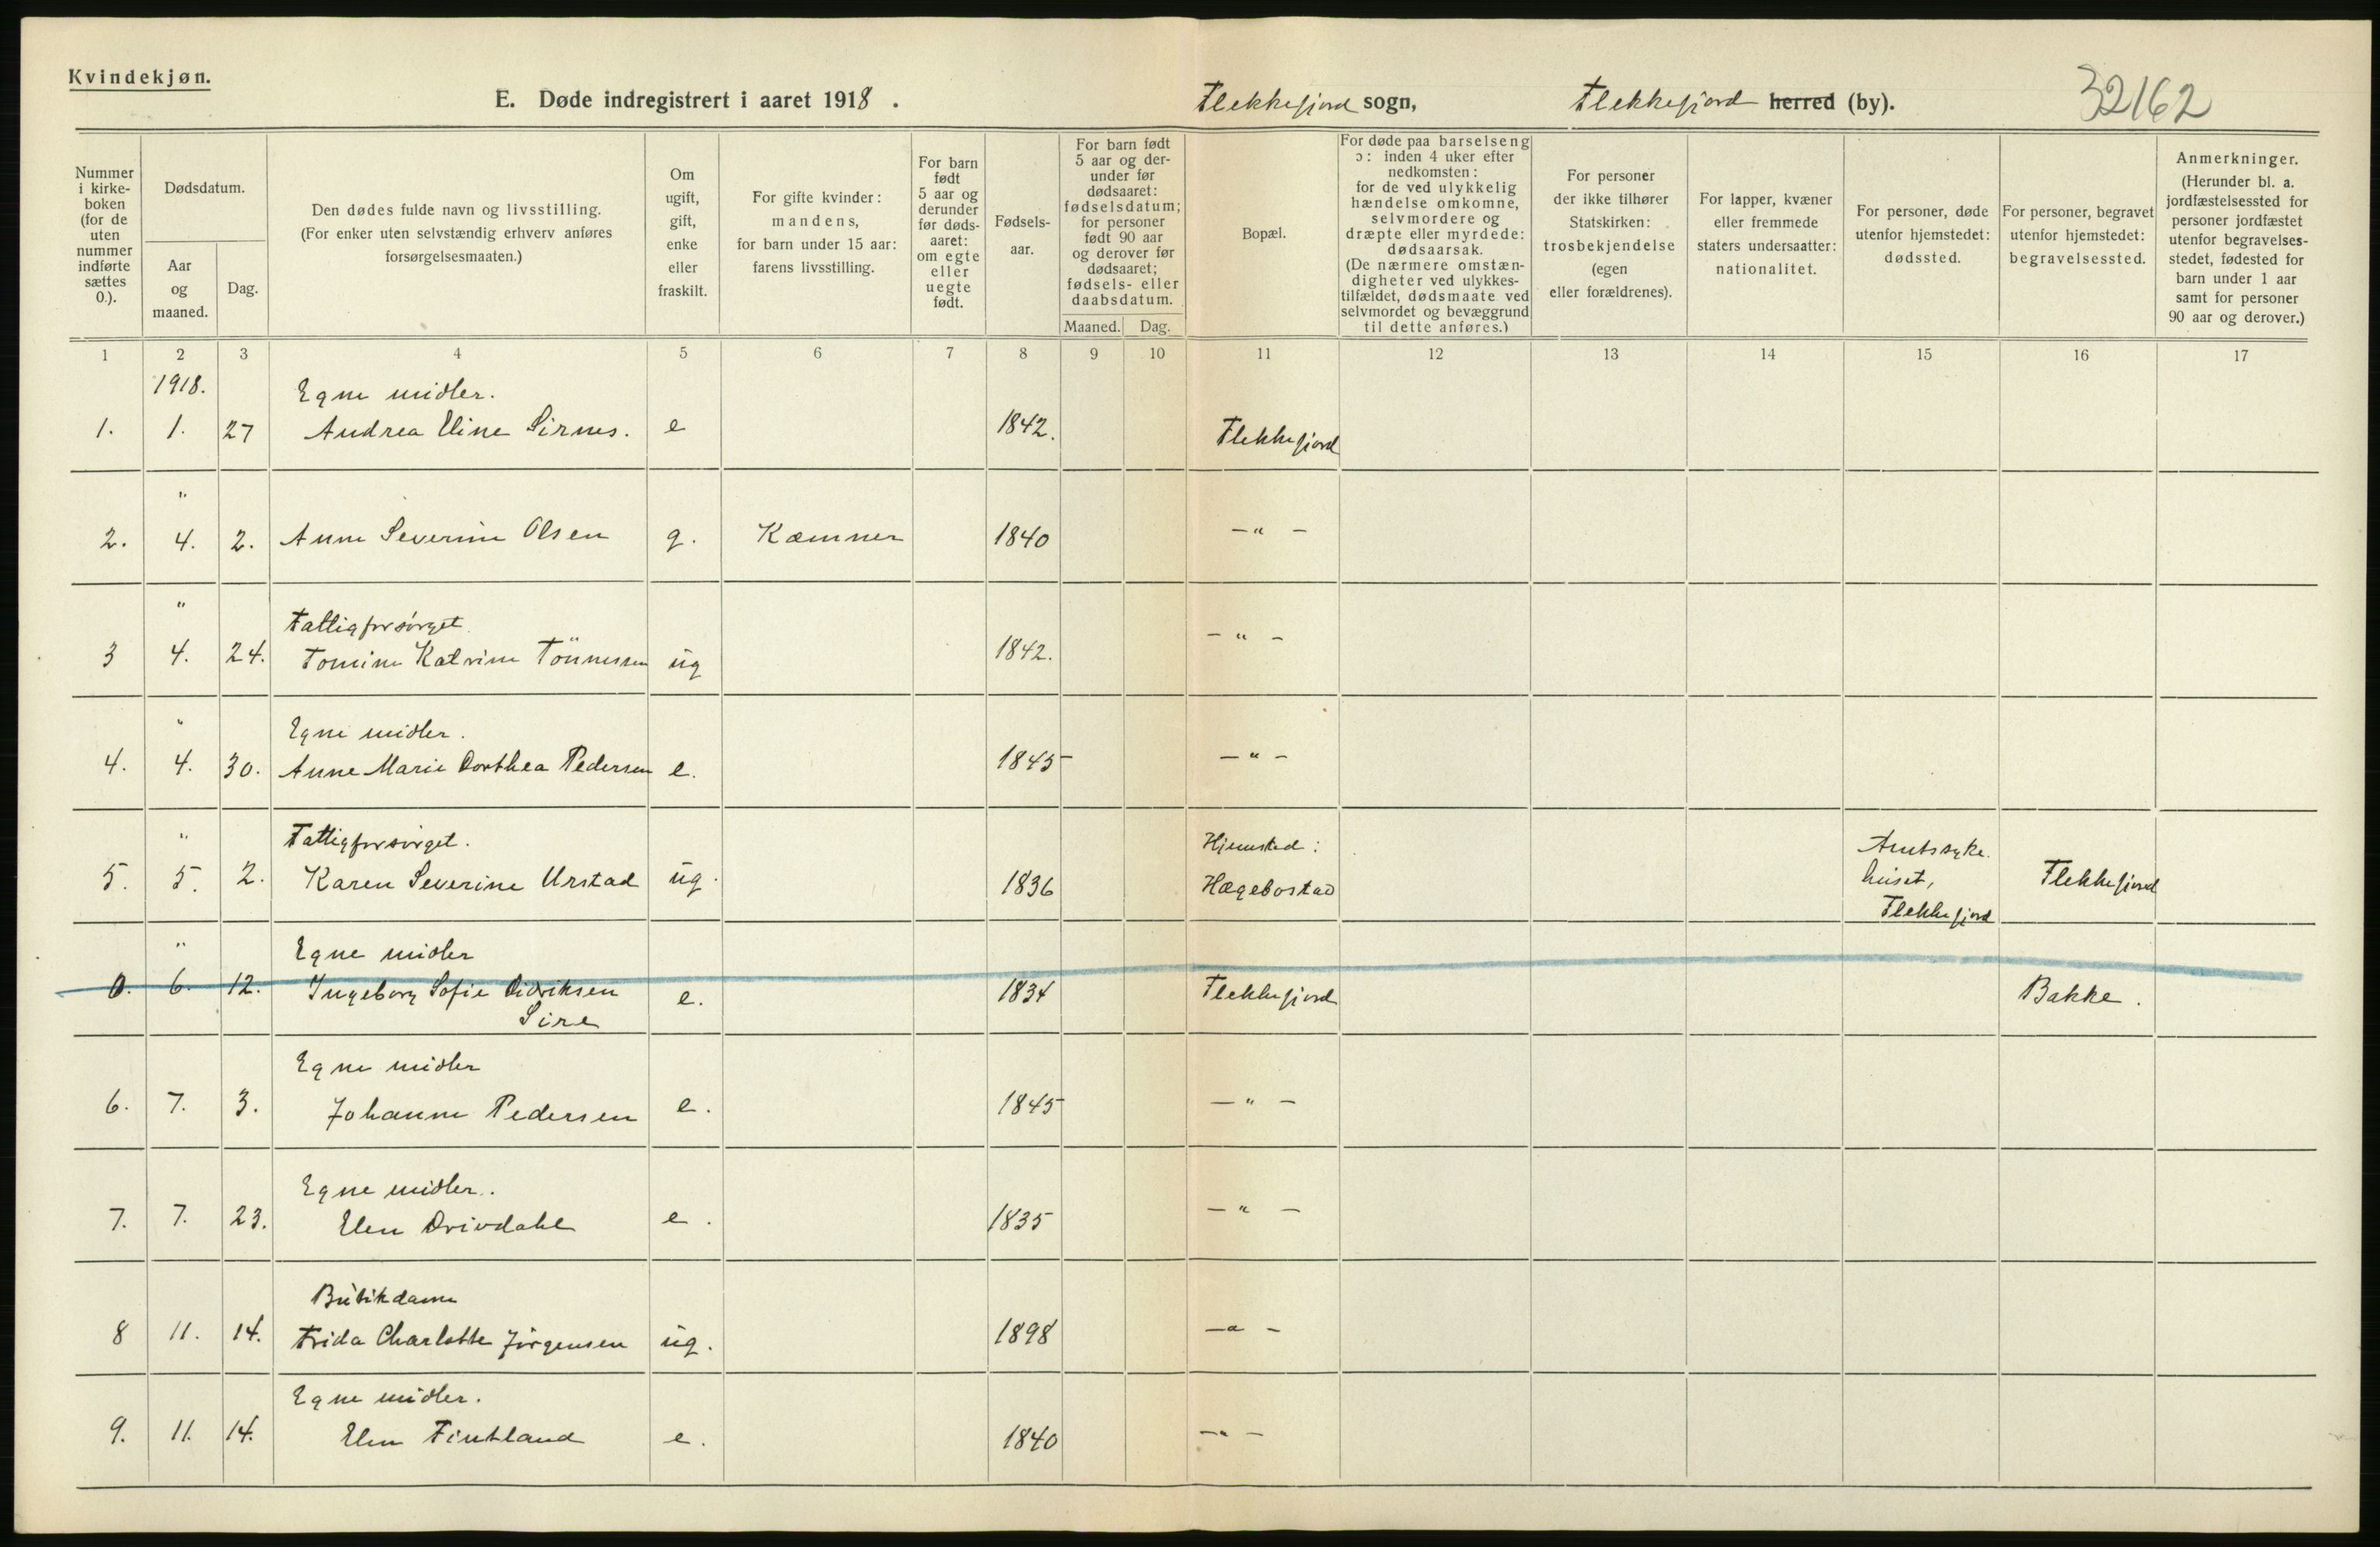 Kvindekjøn.
E. Døde indregistrert i aaret 1918.
Flekkefjord sogn,
Flekkefjord herred (by).
32162
Nummer i kirkeboken (for de uten nummer indførte sættes 0.).
Dødsdatum.
Aar og maaned.
Dag.
Den dødes fulde navn og livsstilling.
(For enker uten selvstændig erhverv anføres forsørgelsesmaaten.)
Om ugift, gift, enke eller fraskilt.
For gifte kvinder: mandens, for barn under 15 aar: farens livsstilling.
For barn født 5 aar og derunder før dødsaaret: om egte eller uegte født.
Fødselsaar.
For barn født 5 aar og derunder før dødsaaret: fødselsdatum; for personer født 90 aar og derover før dødsaaret; fødsels- eller daabsdatum.
Maaned.
Dag.
Bopæl.
For døde paa barselseng ɔ: inden 4 uker efter nedkomsten: for de ved ulykkelig hændelse omkomne, selvmordere og dræpte eller myrdede: dødsaarsak.
(De nærmere omstændigheter ved ulykkestilfældet, dødsmaate ved selvmordet og bevæggrund til dette anføres.)
For personer der ikke tilhører Statskirken: trosbekjendelse (egen eller forældrenes).
For lapper, kvæner eller fremmede staters undersaatter: nationalitet.
For personer, døde utenfor hjemstedet: dødssted.
For personer, begravet utenfor hjemstedet: begravelsessted.
Anmerkninger.
(Herunder bl. a. jordfæstelsessted for personer jordfæstet utenfor begravelsesstedet, fødested for barn under 1 aar samt for personer 90 aar og derover.)
1 2 3 4 5 6 7 8 9 10 11 12 13 14 15 16 17
1918. Egne midler.
1. 1. 27 Andrea Eline Sirnes. e 1842. Flekkefjord
"
2. 4. 2. Anne Severine Olsen g. Kæmner 1840 — " —
" Fattigforsörget.
3 4. 24. Tomine Katrine Tönnessen ug 1842. — " —
" Egne midler.
4. 4. 30. Anne Marie Dorthea Pedersen e. 1845 — " —
" Fattigforsörget. Hjemsted: Amtssyke.
5. 5. 2. Karen Severine Urstad ug. 1836 Hægebostad huset, Flekkefjord
Flekkefjord
" Egne midler
0. 6. 12. Ingeborg Sofie Didriksen e. 1834 Flekkefjord Bakke.
Sire
Egne midler
6. 7. 3. Johanne Pedersen e. 1845 — " —
Egne midler.
7. 7. 23. Elen Drivdahl e. 1835 — " —
Butikdame
8 11. 14. Frida Charlotte Jörgensen ug. 1898 — " —
Egne midler.
9. 11. 14. Elen Fintland e. 1840 — " —